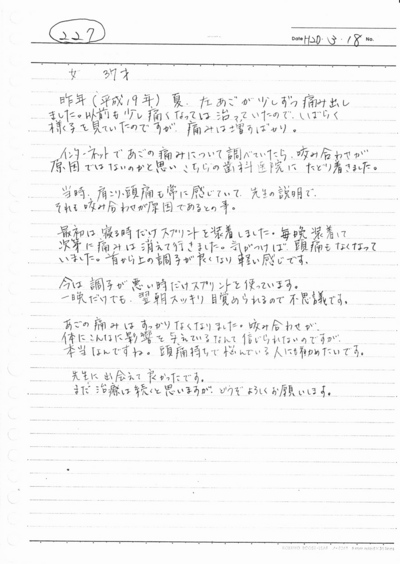 227
Date H20・3・18 No.
女 37才
昨年(平成19年)夏、左あごが少しずつ痛み出し
ました。以前も少し痛くなっては治っていたので、しばらく
様子を見ていたのですが、痛みは増すばかり。
インターネットであごの痛みについて調べていたら、咬み合わせが
原因ではないのかと思い こちらの歯科医院に たどり着きました。
当時、肩こり・頭痛も常に感じていて、先生の説明で、
それも咬み合わせが原因であるとの事。
最初は 寝る時だけスプリントを装着しました。毎晩 装着して
次第に痛みは消えて行きました。気がつけば、頭痛もなくなって
いました。首から上の調子が良くなり軽い感じです。
今は 調子が悪い時だけスプリントを使っています。
一晩だけでも、翌朝スッキリ目覚められるので不思議です。
あごの痛みは すっかりなくなりました。咬み合わせが、
体にこんなに影響を与えているなんて信じられないのですが、
本当なんですね。頭痛持ちで悩んでいる人にも勧めたいです。
先生に出会えて良かったです。
まだ治療は続くと思いますが、どうぞよろしくお願いします。